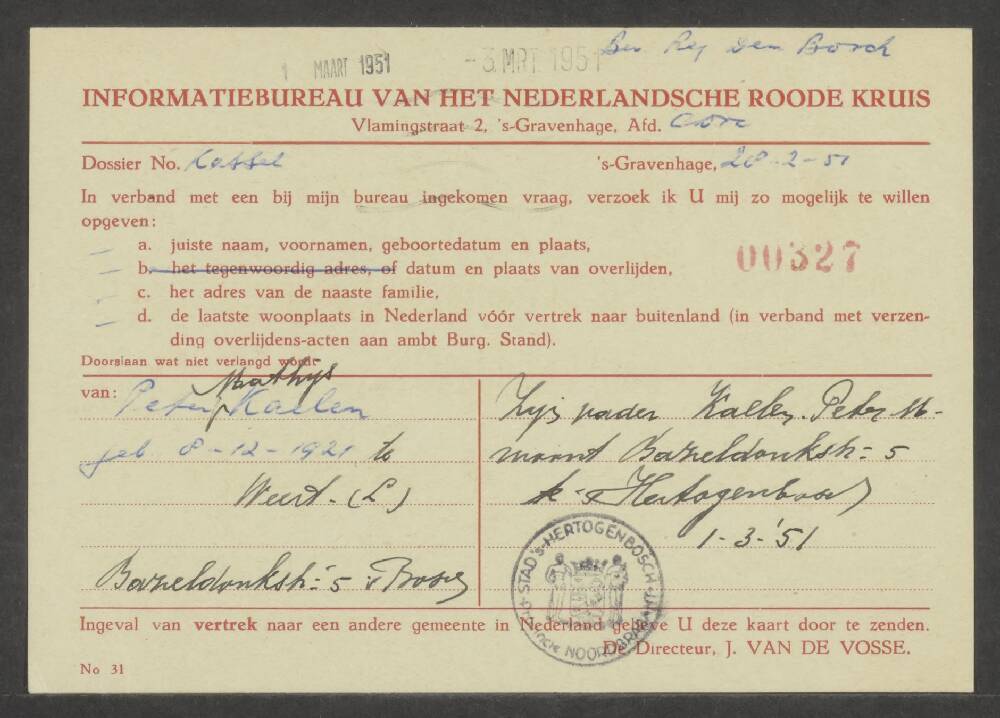 1 MAART 1951
-3. MRT 1951
Bev Reg Den Bosch
INFORMATIEBUREAU VAN HET NEDERLANDSCHE ROODE KRUIS
Vlamingstraat 2, 's-Gravenhage, Afd.
Dossier No. Kassel 's-Gravenhage, 28-2-51
In verband met een bij mijn bureau ingekomen vraag, verzoek ik U mij zo mogelijk te willen
opgeven:
a. juiste naam, voornamen, geboortedatum en plaats,
b. het tegenwoordig adres, of datum en plaats van overlijden,
00327
c. het adres van de naaste familie,
d. de laatste woonplaats in Nederland vóór vertrek naar buitenland (in verband met verzen-
ding overlijdens-acten aan ambt Burg. Stand).
Doorslaan wat niet verlangd wordt
Mathijs
van: Peter Kaelen
geb 8-12-1921 te
Weert (L)
Barzeldonkstr. 5 's Bosch
Zijn vader Kaelen Peter M.
woont Barzeldonkstr. 5
te 's Hertogenbosch
1-3-'51
STAD 's-HERTOGENBOSCH
Provincie NOORDBRABANT
Ingeval van vertrek naar een andere gemeente in Nederland gelieve U deze kaart door te zenden.
De Directeur, J. VAN DE VOSSE.
No 31